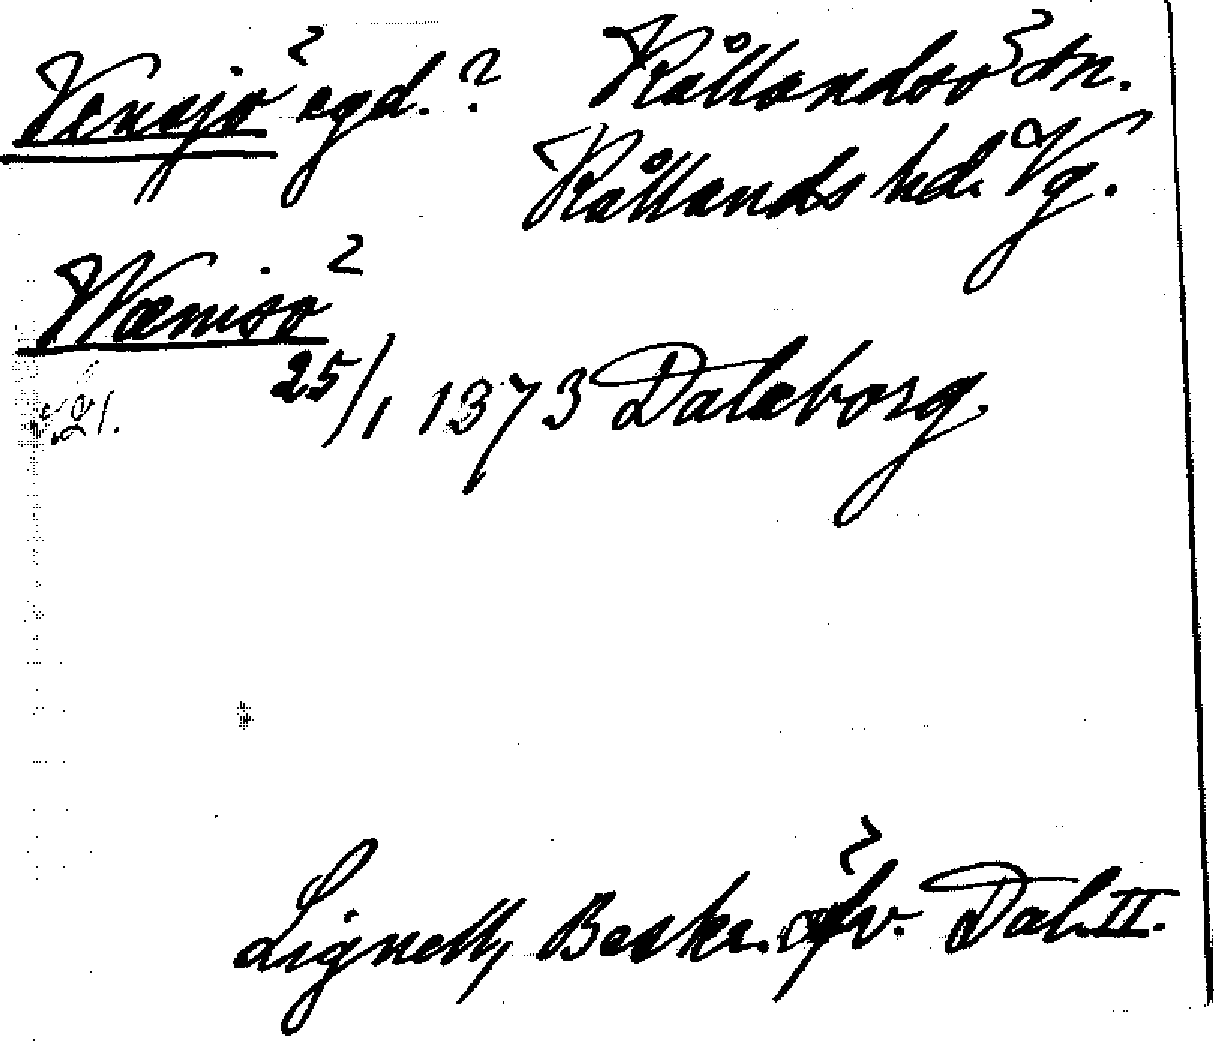 Vänsjö egd.? Kållandsö sn.
Kållands hd. Vg.
Wænisö
25/1 1373 Daleborg
s. 21.
Lignell, Beskr. öfv. Dal. II.